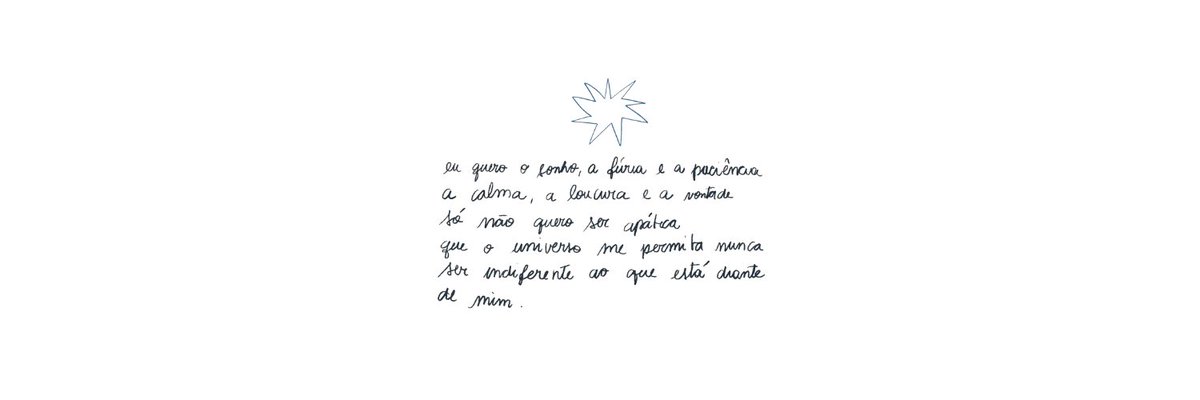 eu quero o sonho, a fúria e a paciência
a calma, a loucura e a vontade
só não quero ser apática
que o universo me permita nunca
ser indiferente ao que está diante
de mim.